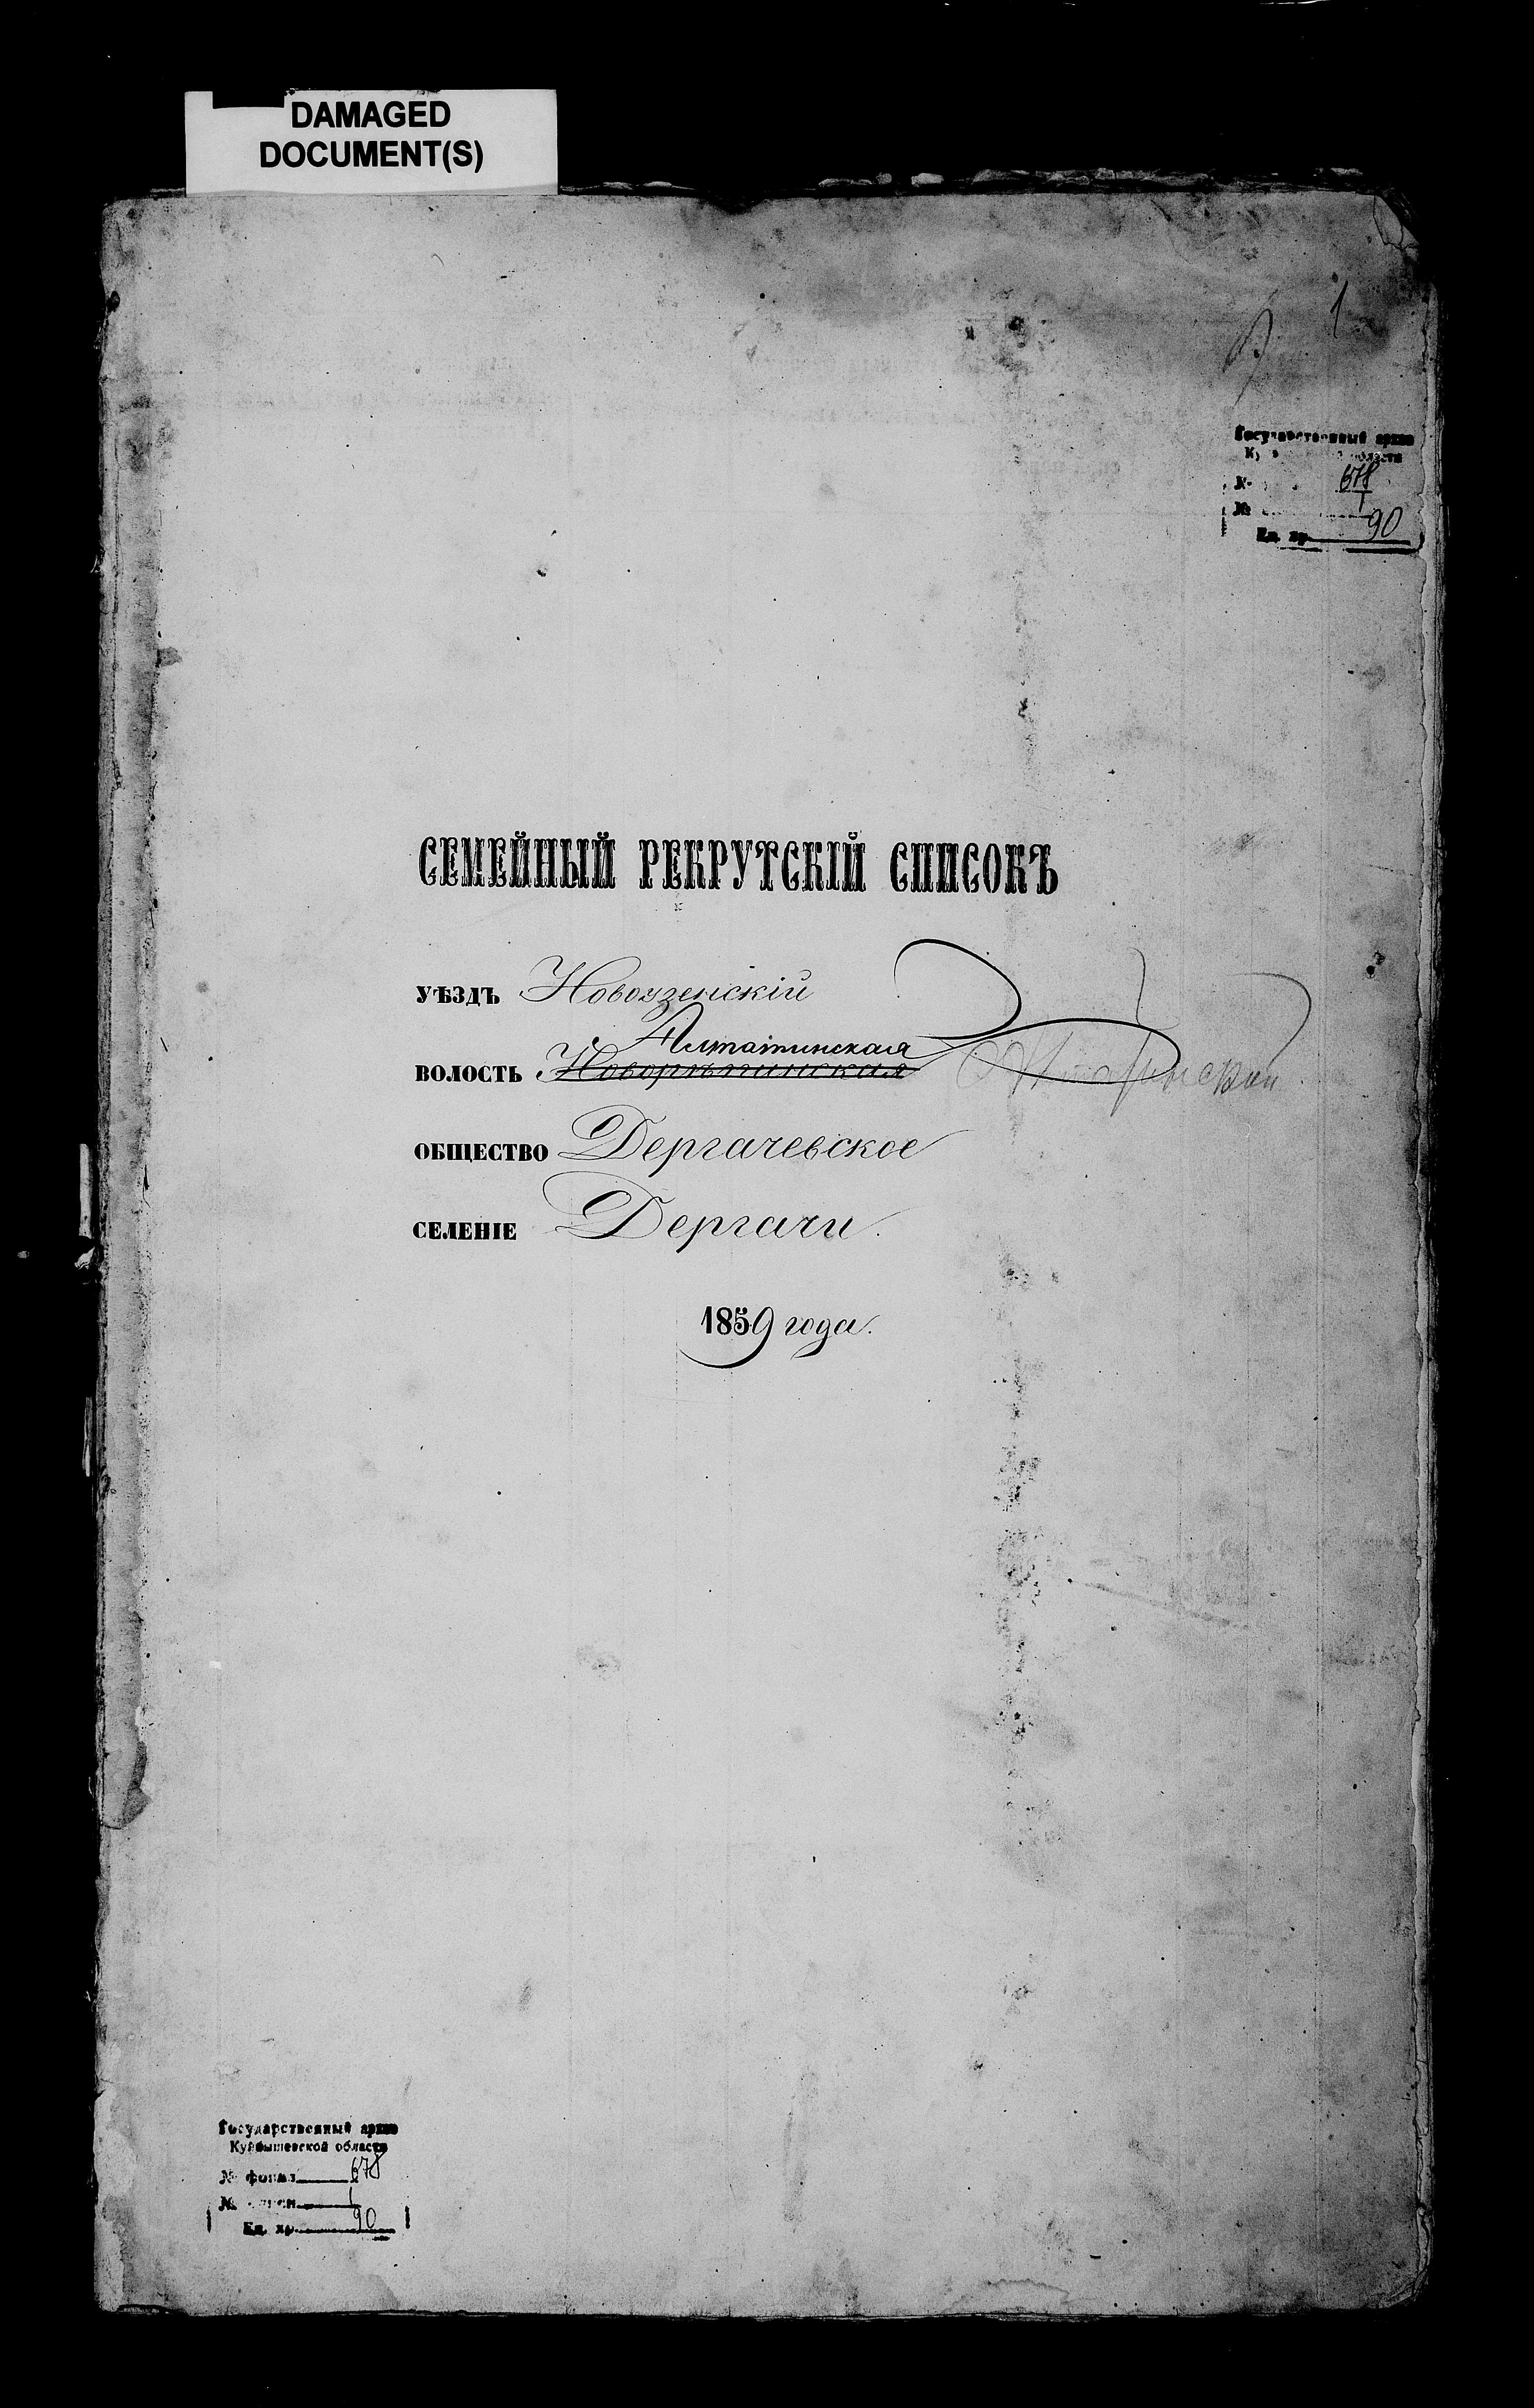 DAMAGED
DOCUMENT(S)
1
Государственный архив
области
№ 678
№ 1
Ед. хр. 90
СЕМЕЙНЫЙ РЕКРУТСКІЙ СПИСОКЪ
УѢЗДЪ Новоузенскій
Алтатинская
ВОЛОСТЬ Новорѣпинская
ОБЩЕСТВО Дергачевское
СЕЛЕНІЕ Дергачи.
1859 года.
Государственный архив
Куйбышевской области
№ фонда 678
№ описи 1
Ед. хр. 90